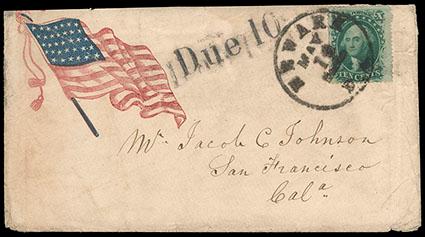 Due 10
NEWARK
MAY
TEN CENTS
Mr. Jacob C Johnson
San Francisco
Cala